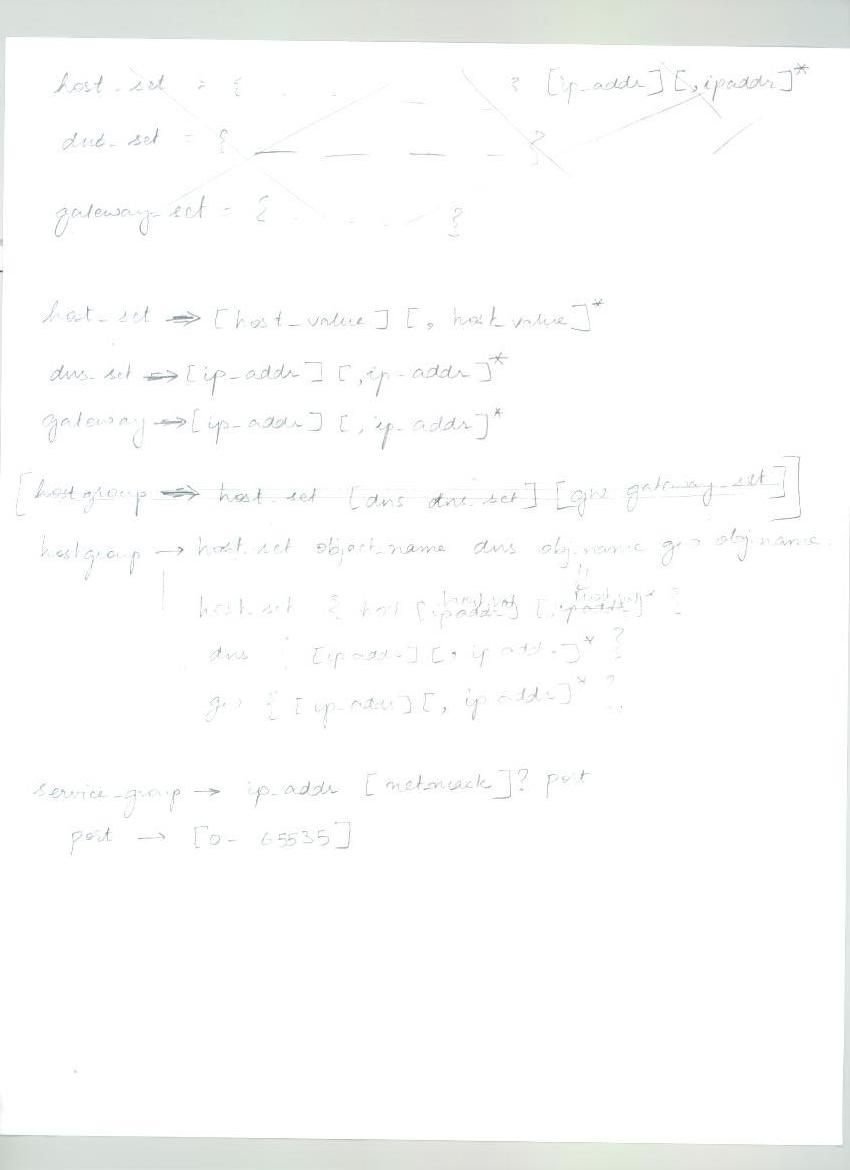 host_set = { . . _ _ } [ip_addr] [, ipaddr]*
dns_set = { _ _ _ _ }
gateway_set = { . . . . }
host_set ⇒ [host_value] [, host_value]*
dns_set ⇒ [ip_addr] [, ip_addr]*
gateway ⇒ [ip_addr] [, ip_addr]*
[hostgroup ⇒ host_set [dns dns_set] [gw gateway_set]]
hostgroup → host_set object_name dns obj.name gw obj.name.
host_set { host [ipaddr] [, ipaddr]* }
dns { [ipaddr] [, ip addr]* }
gw { [ip_addr] [, ip addr]* }
service_group → ip_addr [netmask]? port
port → [0- 65535]